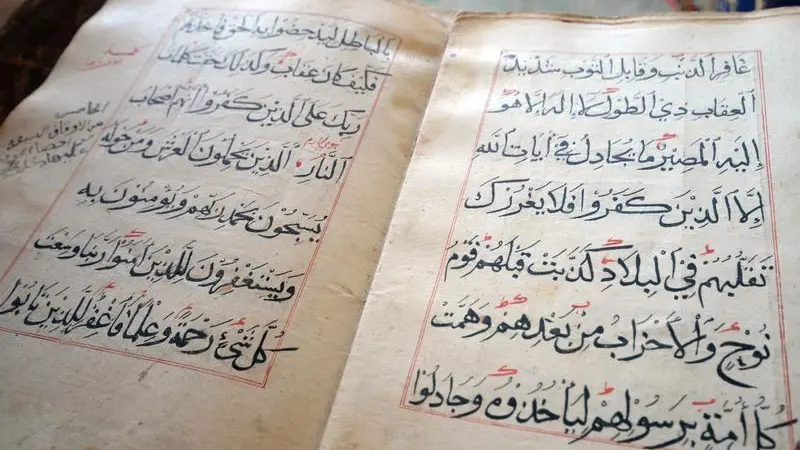 غافر الذنب وقابل التوب شديد
العقاب ذي الطول لا إله إلا هو
إليه المصير ما يجادل في آيات الله
إلا الذين كفروا فلا يغررك
تقلبهم في البلاد كذبت قبلهم قوم
نوح والأحزاب من بعدهم وهمت
كل أمة برسولهم ليأخذوه وجادلوا
بالباطل ليدحضوا به الحق فأخذتهم
فكيف كان عقاب وكذلك حقت كلمات
ربك على الذين كفروا أنهم أصحاب
النار الذين يحملون العرش ومن حوله
يسبحون بحمد ربهم ويؤمنون به
ويستغفرون للذين آمنوا ربنا وسعت
كل شيء رحمة وعلما فاغفر للذين تابوا